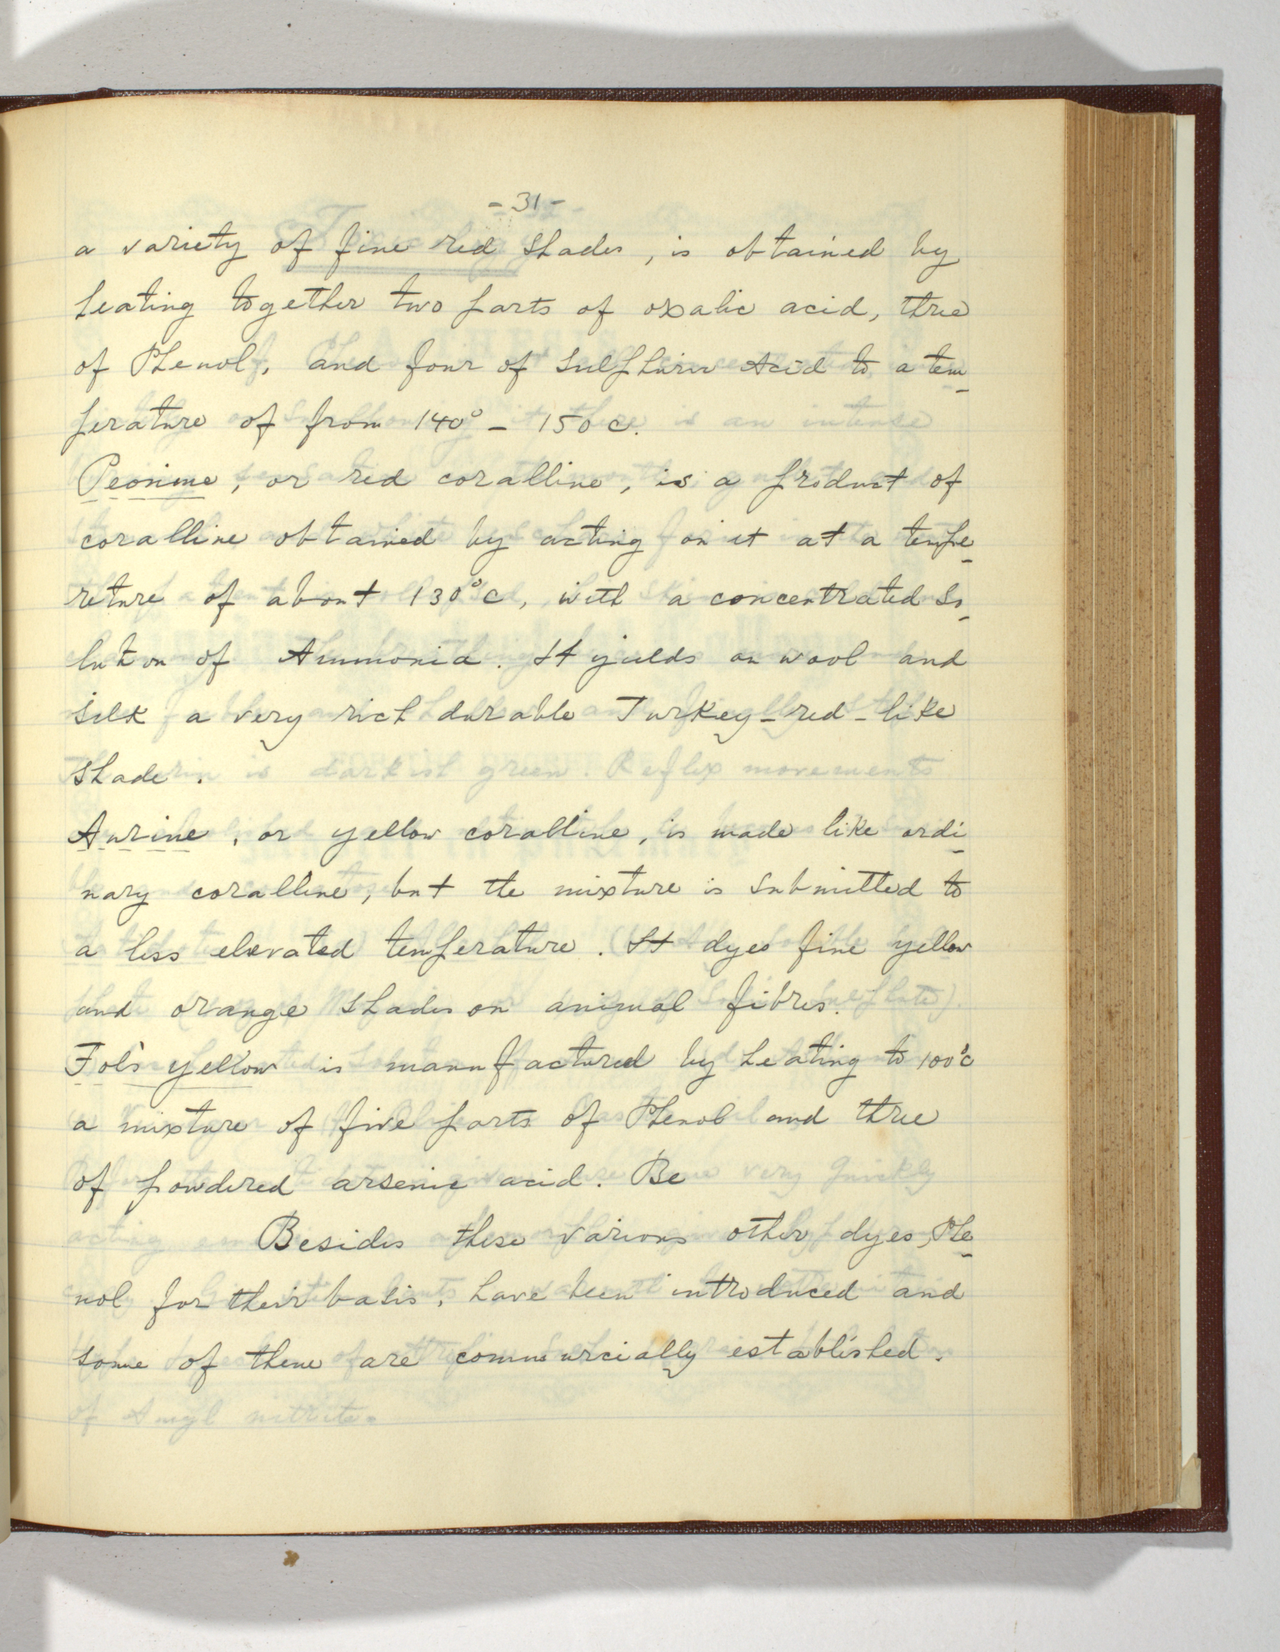 - 31 -
a variety of fine red shades, is obtained by
heating together two parts of oxalic acid, three
of Phenol, and four of Sulphuric Acid to a tem-
perature of from 140° - 150 C.
Peonine, or red coralline, is a product of
coralline obtained by acting on it at a tempe-
reture of about 130°C, with a concentrated So-
lution of Ammonia. It yields on wool and
silk a very rich durable Turkey-red-like
shade.
Aurine, or yellow coralline, is made like ordi-
nary coralline, but the mixture is submitted to
a less elevated temperature. It dyes fine yellow
and orange shades on animal fibres.
Fol's yellow is manufactured by heating to 100°C
a mixture of five parts of Phenol and three
of powdered arsenic acid. Be
Besides these various other dyes, Phe-
nol for their basis, have been introduced and
some of them are commercially established.